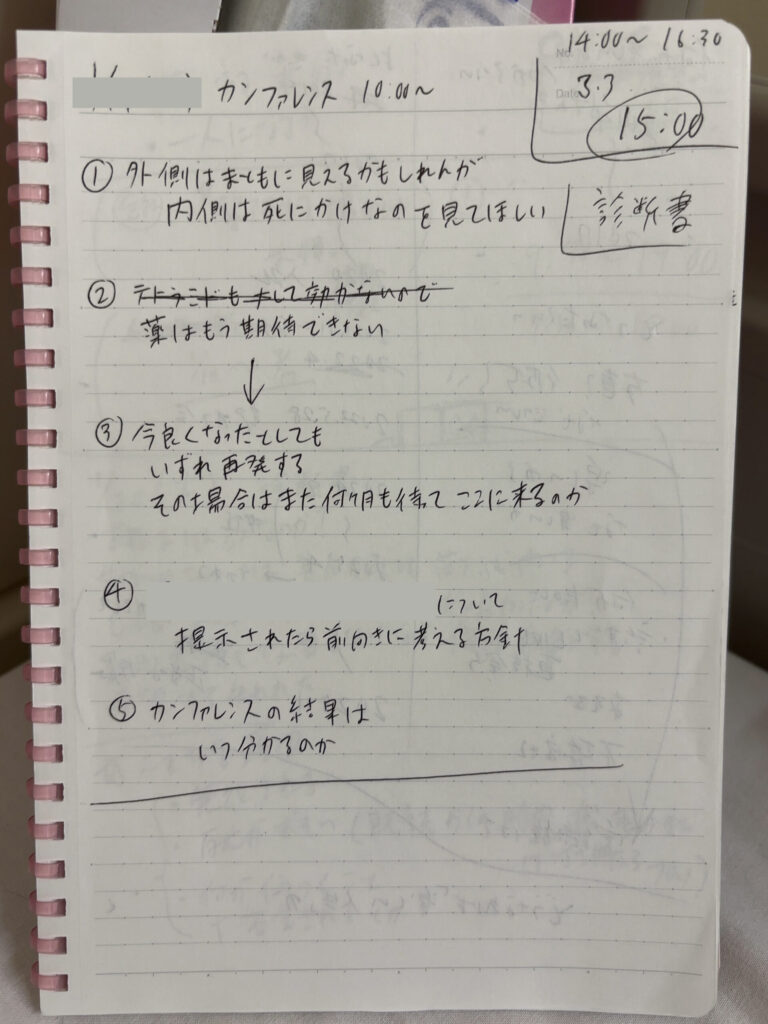 14:00〜 16:30
No.
Date
3.3
15:00
カンファレンス 10:00〜
① 外側はまともに見えるかもしれんが
内側は死にかけなのを見てほしい
診断書
② テトラミドも大して効かないので
薬はもう期待できない
↓
③ 今良くなったとしても
いずれ再発する
その場合はまた何ヶ月も待ってここに来るのか
④
について
提示されたら前向きに考える方針
⑤ カンファレンスの結果は
いつ分かるのか